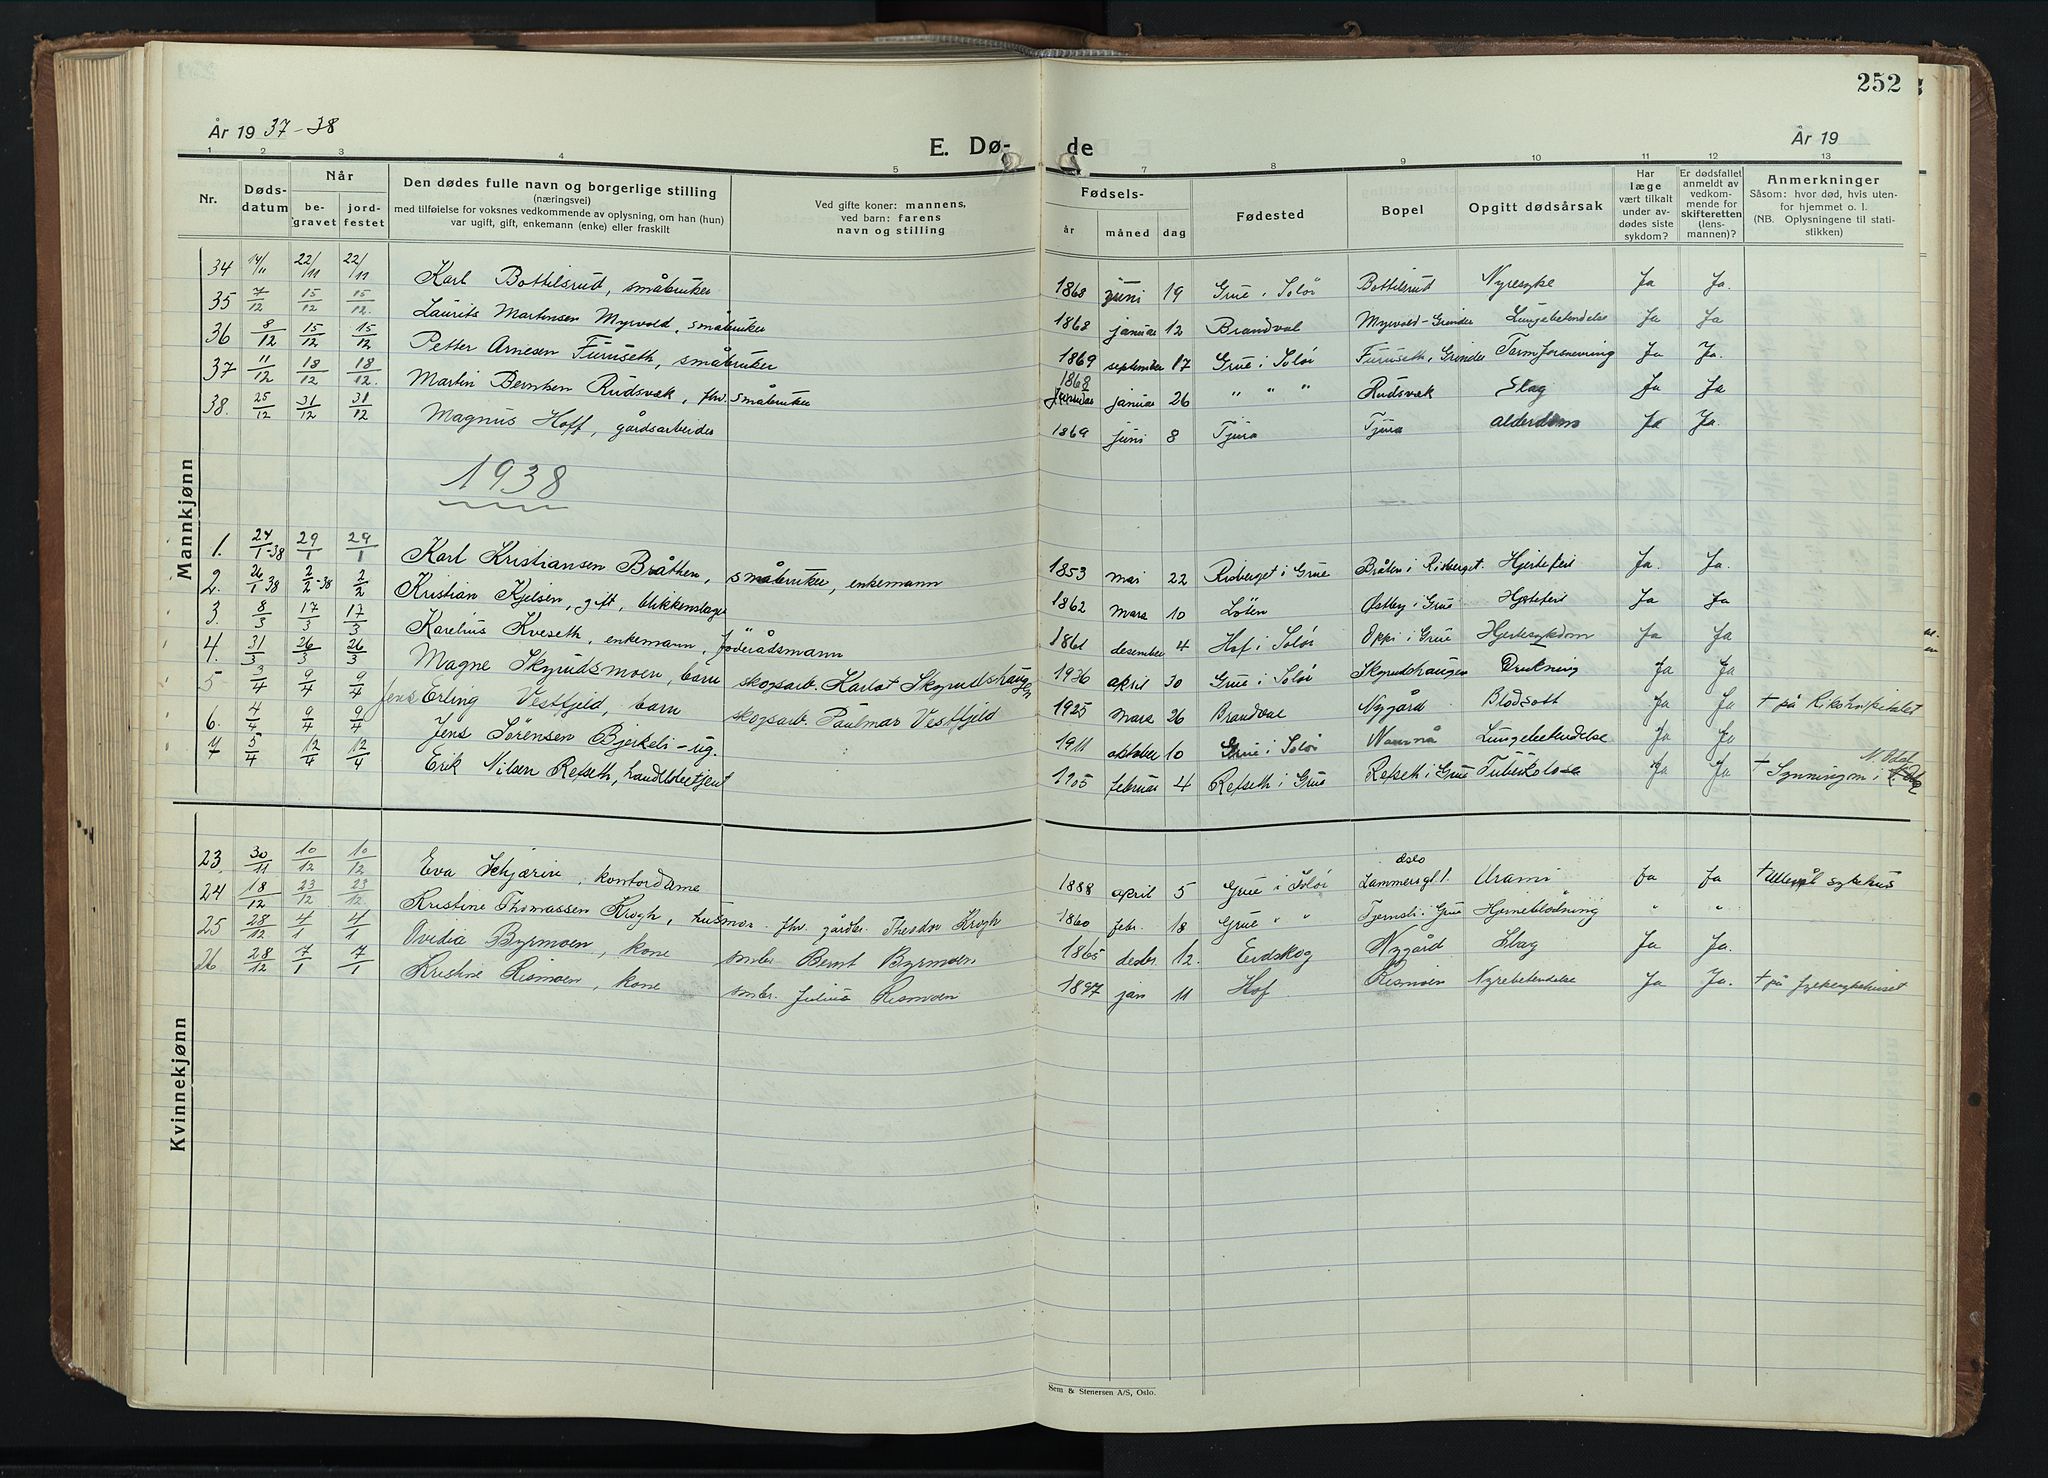 252
År 19 37-38 E. Dø- de År 19
1 2 3 4 5 6 7 8 9 10 11 12 13
Nr. Døds-datum Når be-gravet jord-festet Den dødes fulle navn og borgerlige stilling (næringsvei) med tilføielse for voksnes vedkommende av oplysning, om han (hun) var ugift, gift, enkemann (enke) eller fraskilt Ved gifte koner: mannens, ved barn: farens navn og stilling Fødsels- år måned dag Fødested Bopel Opgitt dødsårsak Har læge vært tilkalt under av-dødes siste sykdom? Er dødsfallet anmeldt av vedkom-mende for skifteretten (lens-mannen)? Anmerkninger Såsom: hvor død, hvis uten-for hjemmet o. l. (NB. Oplysningene til stati-stikken)
Mannkjønn
34 14/11 22/11 22/11 Karl Bottilsrud, småbruker 1868 juni 19 Grue i Solør Bottilsrud Nyresyke Ja Ja.
35 7/12 15/12 15/12. Laurits Martinsen Myrvold, småbruker 1868 januar 12 Brandval Myrvold-Grinder Lungebetendelse Ja Ja
36 8/12 15/12 15/12 Petter Arnesen Furuseth, småbruker 1869 september 17 Grue i Solør Furuseth, Grinder Tarmforsnevring Ja Ja.
37 11/12 18/12 18/12. Martin Berntsen Rudsvæk, fhv. småbruker 1868 januar 26 " " " Rudsvæk Slag Ja Ja
38. 25/12 31/12 31/12 Magnus Hoff, gårdsarbeider 1869 juni 8 Tjura Tjura alderdom Ja Ja.
1938
1. 24/1-38 29/1 29/1 Karl Kristiansen Bråthen, småbruker, enkemann 1853 mai 22 Risberget i Grue Bråten i Risberget. Hjertefeil Ja. Ja.
2. 26/1 38 2/2-38 2/2 Kristian Kjelsen, gift, blikkenslager 1862 mars 10 Løten Østby i Grue Hjertefeil Ja Ja
3. 8/3 17/3 17/3 Karelius Kveseth, enkemann, føderådsmann 1861 desember 4 Hof i Solør Oppi i Grue Hjertesykdom Ja Ja
4. 31/3 26/3 26/3 Magne Skyrudsmoen, barn skogsarb. Karlot Skyrudshaugen 1936 april 30 Grue i Solør Skyrudshaugen Drukning Ja Ja
5 3/4 9/4 9/4 Jens Erling Vestfjeld, barn skogsarb. Paulmar Vestfjeld 1925 mars 26 Brandval Nygård Blodsott Ja Ja † på Rikshospitalet
6. 4/4 9/4 9/4 Jens Sørensen Bjerkeli - ug. 1911 oktober 10 Grue i Solør Namnå Lungebetendelse Ja Ja
7 5/4 12/4 12/4 Erik Nilsen Refseth, handelsbetjent 1905 februar 4 Refseth i Grue Refseth i Grue Tuberkulose Ja Ja † Synningom i N. Odal
Kvinnekjønn
23. 30/11 10/12 10/12 Eva Schjærin, kontordame 1888 april 5 Grue i Solør Oslo Lammersgt. 1. Urami Ja Ja † Ullevål sykehus
24 18/12 23/12 23/12. Kristine Thomassen Krogh, husmor. fhv. gårdbr. Theodor Krogh 1860 febr. 18 Grue " " Tjernsli i Grue Hjerneblødning " "
25 28/12 4/1 4/1 Ovidia Byrmoen, kone smbr. Bernt Byrmoen 1865 desbr. 12. Eidskog Nygård Slag Ja Ja.
26 28/12 7/1 7/1 Kristine Rismoen, kone smbr. Julius Rismoen 1897 jan 11 Hof Rismoen Nyrebetendelse Ja Ja. † på fylkesykehuset
Sem & Stenersen A/S, Oslo.